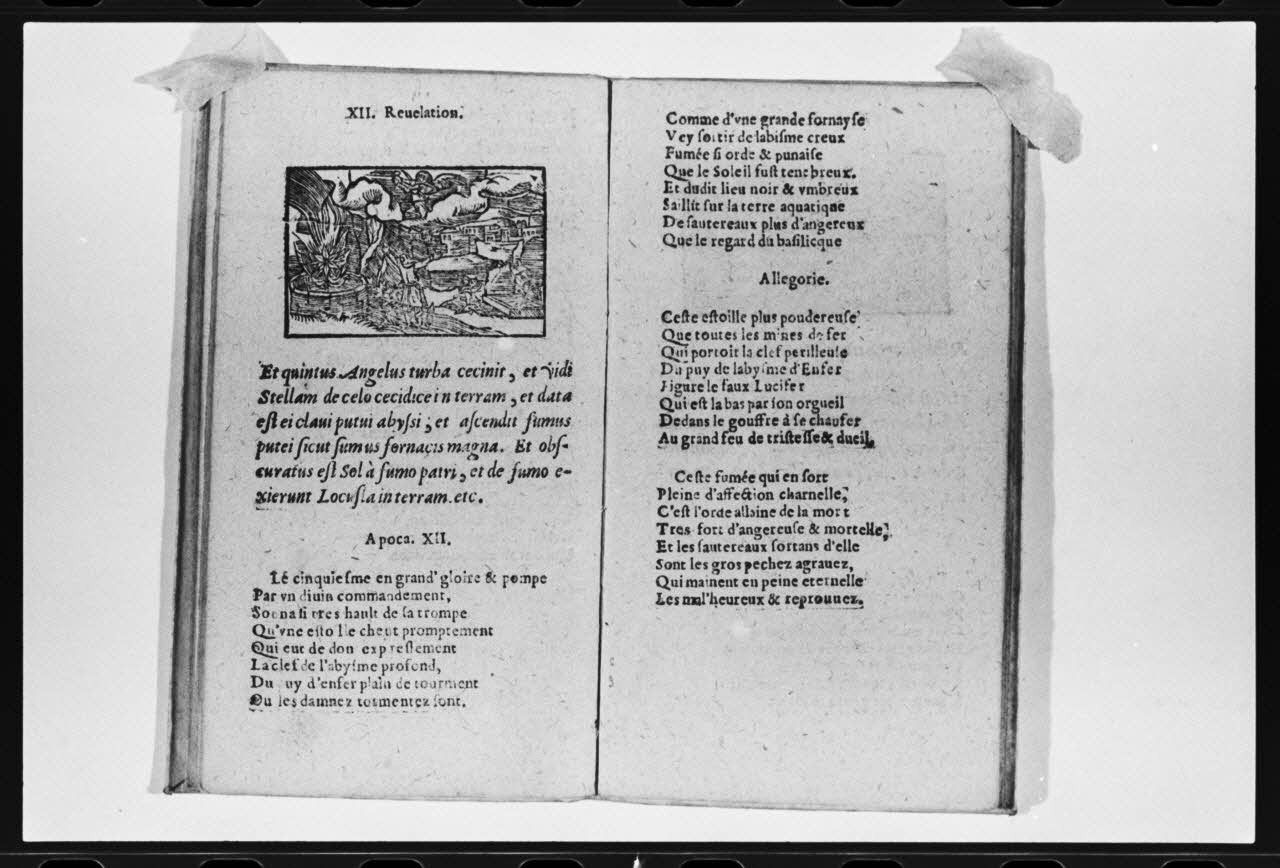 XII. Reuelation.
Et quintus Angelus turba cecinit, et vidi
Stellam de celo cecidice in terram, et data
est ei claui putui abyssi; et ascendit fumus
putei sicut fumus fornacis magna. Et obs-
curatus est Sol à fumo patri, et de fumo e-
xierunt Locusta in terram. etc.
Apoca. XII.
Le cinquiesme en grand' gloire & pompe
Par vn diuin commandement,
Sonna si tres hault de sa trompe
Qu'vne estoille cheut promptement
Qui eut de don expressement
La clef de l'abysme profond,
Du puy d'enfer plain de tourment
Ou les damnez tormentez sont.
Comme d'vne grande fornayse
Vey sortir de labisme creux
Fumée si orde & punaise
Que le Soleil fust tenebreux.
Et dudit lieu noir & vmbreux
Saillit sur la terre aquatique
De sautereaux plus d'angereux
Que le regard du basilicque
Allegorie.
Ceste estoille plus poudereuse
Que toutes les mines de fer
Qui portoit la clef perilleuse
Du puy de labysme d'Enfer
Figure le faux Lucifer
Qui est la bas par son orgueil
Dedans le gouffre à se chaufer
Au grand feu de tristesse & dueil.
Ceste fumée qui en sort
Pleine d'affection charnelle,
C'est l'orde allaine de la mort
Tres fort d'angereuse & mortelle,
Et les sautereaux sortans d'elle
Sont les gros pechez agrauez,
Qui mainent en peine eternelle
Les mal'heureux & reprouuez.